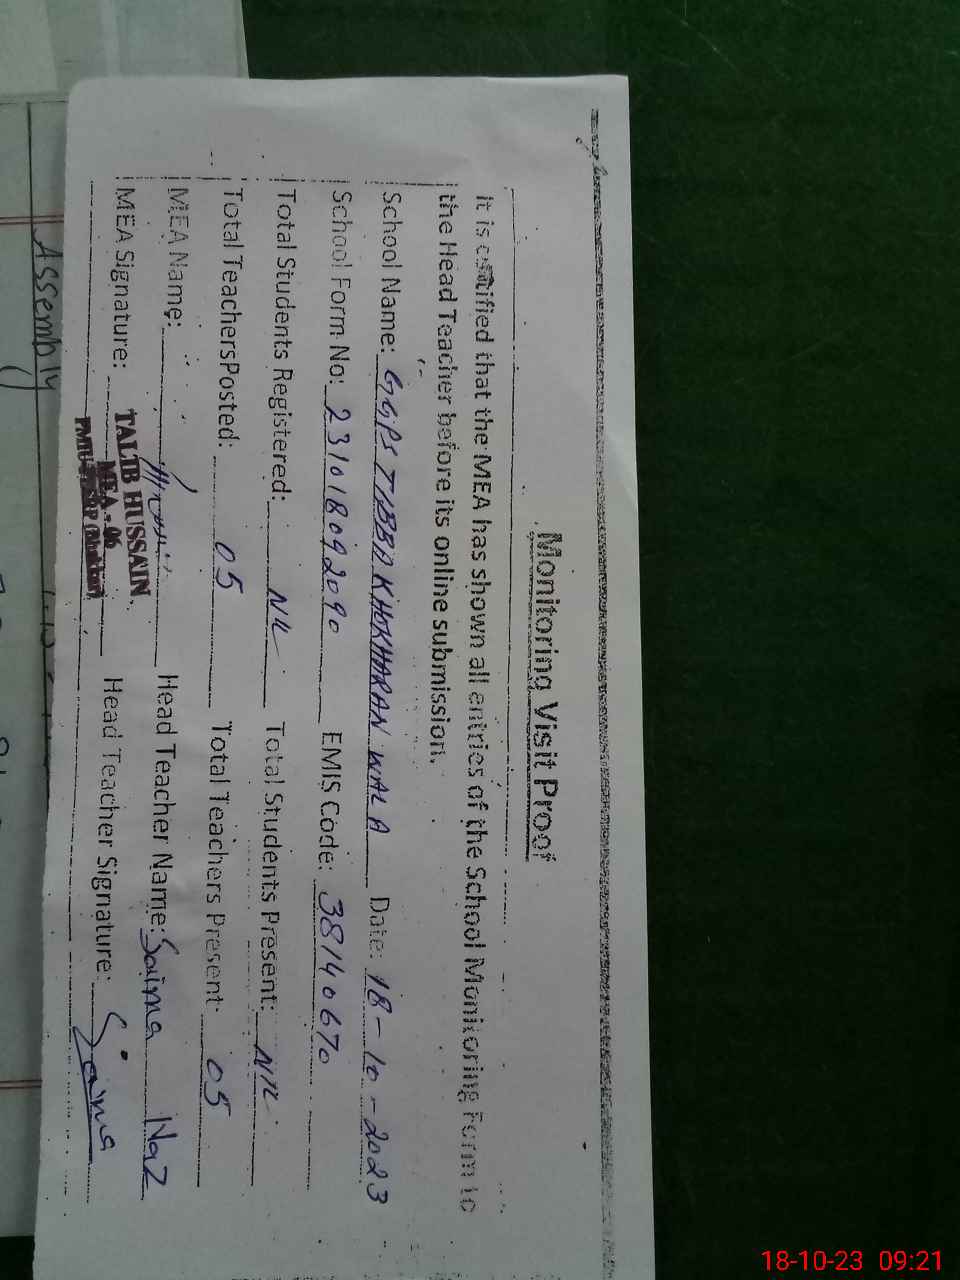 Monitoring Visit Proof
It is certified that the MEA has shown all entries of the School Monitoring Form to
the Head Teacher before its online submission.
School Name: GGPS TIBBA KHOKHARAN WALA Date: 18-10-2023
School Form No: 231018092090 EMIS Code: 38140670
Total Students Registered: NIL Total Students Present: NIL
Total TeachersPosted: 05 Total Teachers Present: 05
MEA Name: Head Teacher Name: Saima Naz
MEA Signature: TALIB HUSSAIN Head Teacher Signature: Saima
MEA - 06
Assembly
18-10-23 09:21